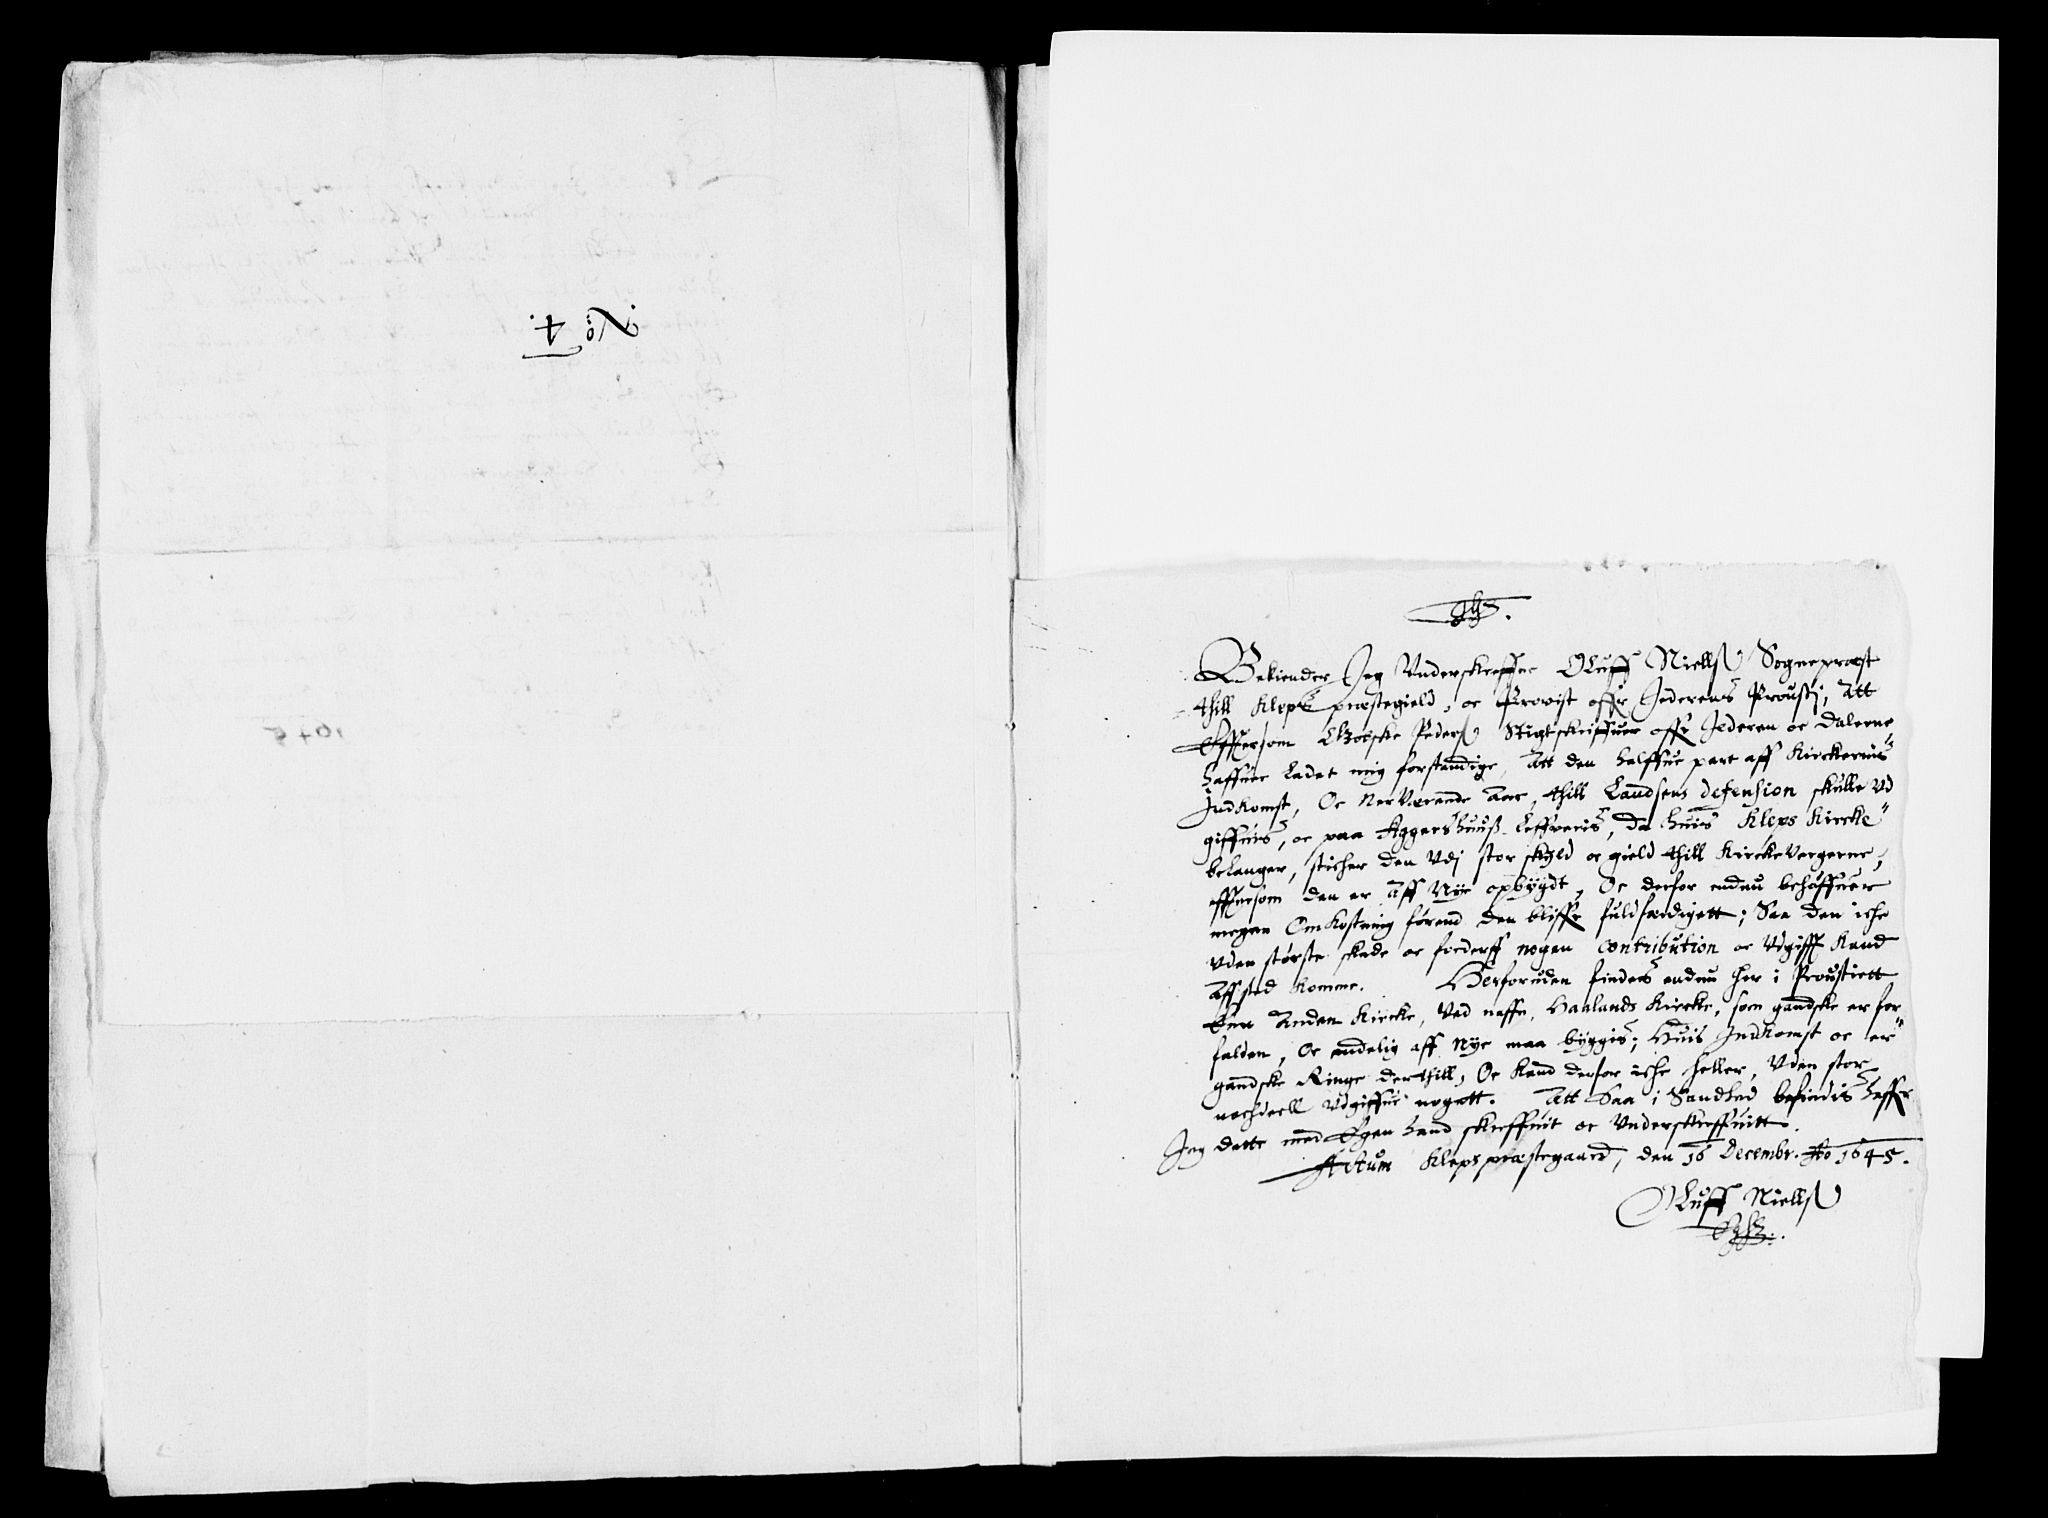 No 4.
IHS.
Bekiender Jeg Underskreffne Oluff Niellsß Sognepræst
thill Klepe præstegield, oc Provist offr Jederens Proustj, Att
Effttersom Peders Stigtskriffuer offr Jederen oc Dalerne
haffuer Ladet mig forstendige, Att den halffue part aff Kirckernis
Indkomst, Oc Nerværende Aar, thill Landsens defension skulle Vd
giffuis, oc paa Aggershuuß Leffveris, Da huis Kleps Kircke
belanger, sticher den Vdj stor skyld oc gield thill Kirckevergerne,
efftersom den er Aff Nye opbygdt, Oc derfor endnu behøffuer
megen Omkostning førend den bliffr fuldferdigett; Saa den iche
vden største skade oc forderff nogen contribution oc Vdgifft Kand
Aff sted komme. Herforuden findes endnu her i Proustiett
Een Anden Kircke, Ved neffn, Haalands Kircke, som gandske er for
falden, Oc endelig aff Nye maa byggis; Huis Indkomst oc er
gandske Ringe derthill, Oc Kand derfor iche heller, Vden stor
nachdeell Vdgiffue nogett. Att Saa i Sandhed befindis haffr
Jeg dette med Egen haand skreffuit oc Underskreffuitt.
Actum Kleps præstegaard, den 16 Decembr. Ao 1645.
Oluff Niellsß